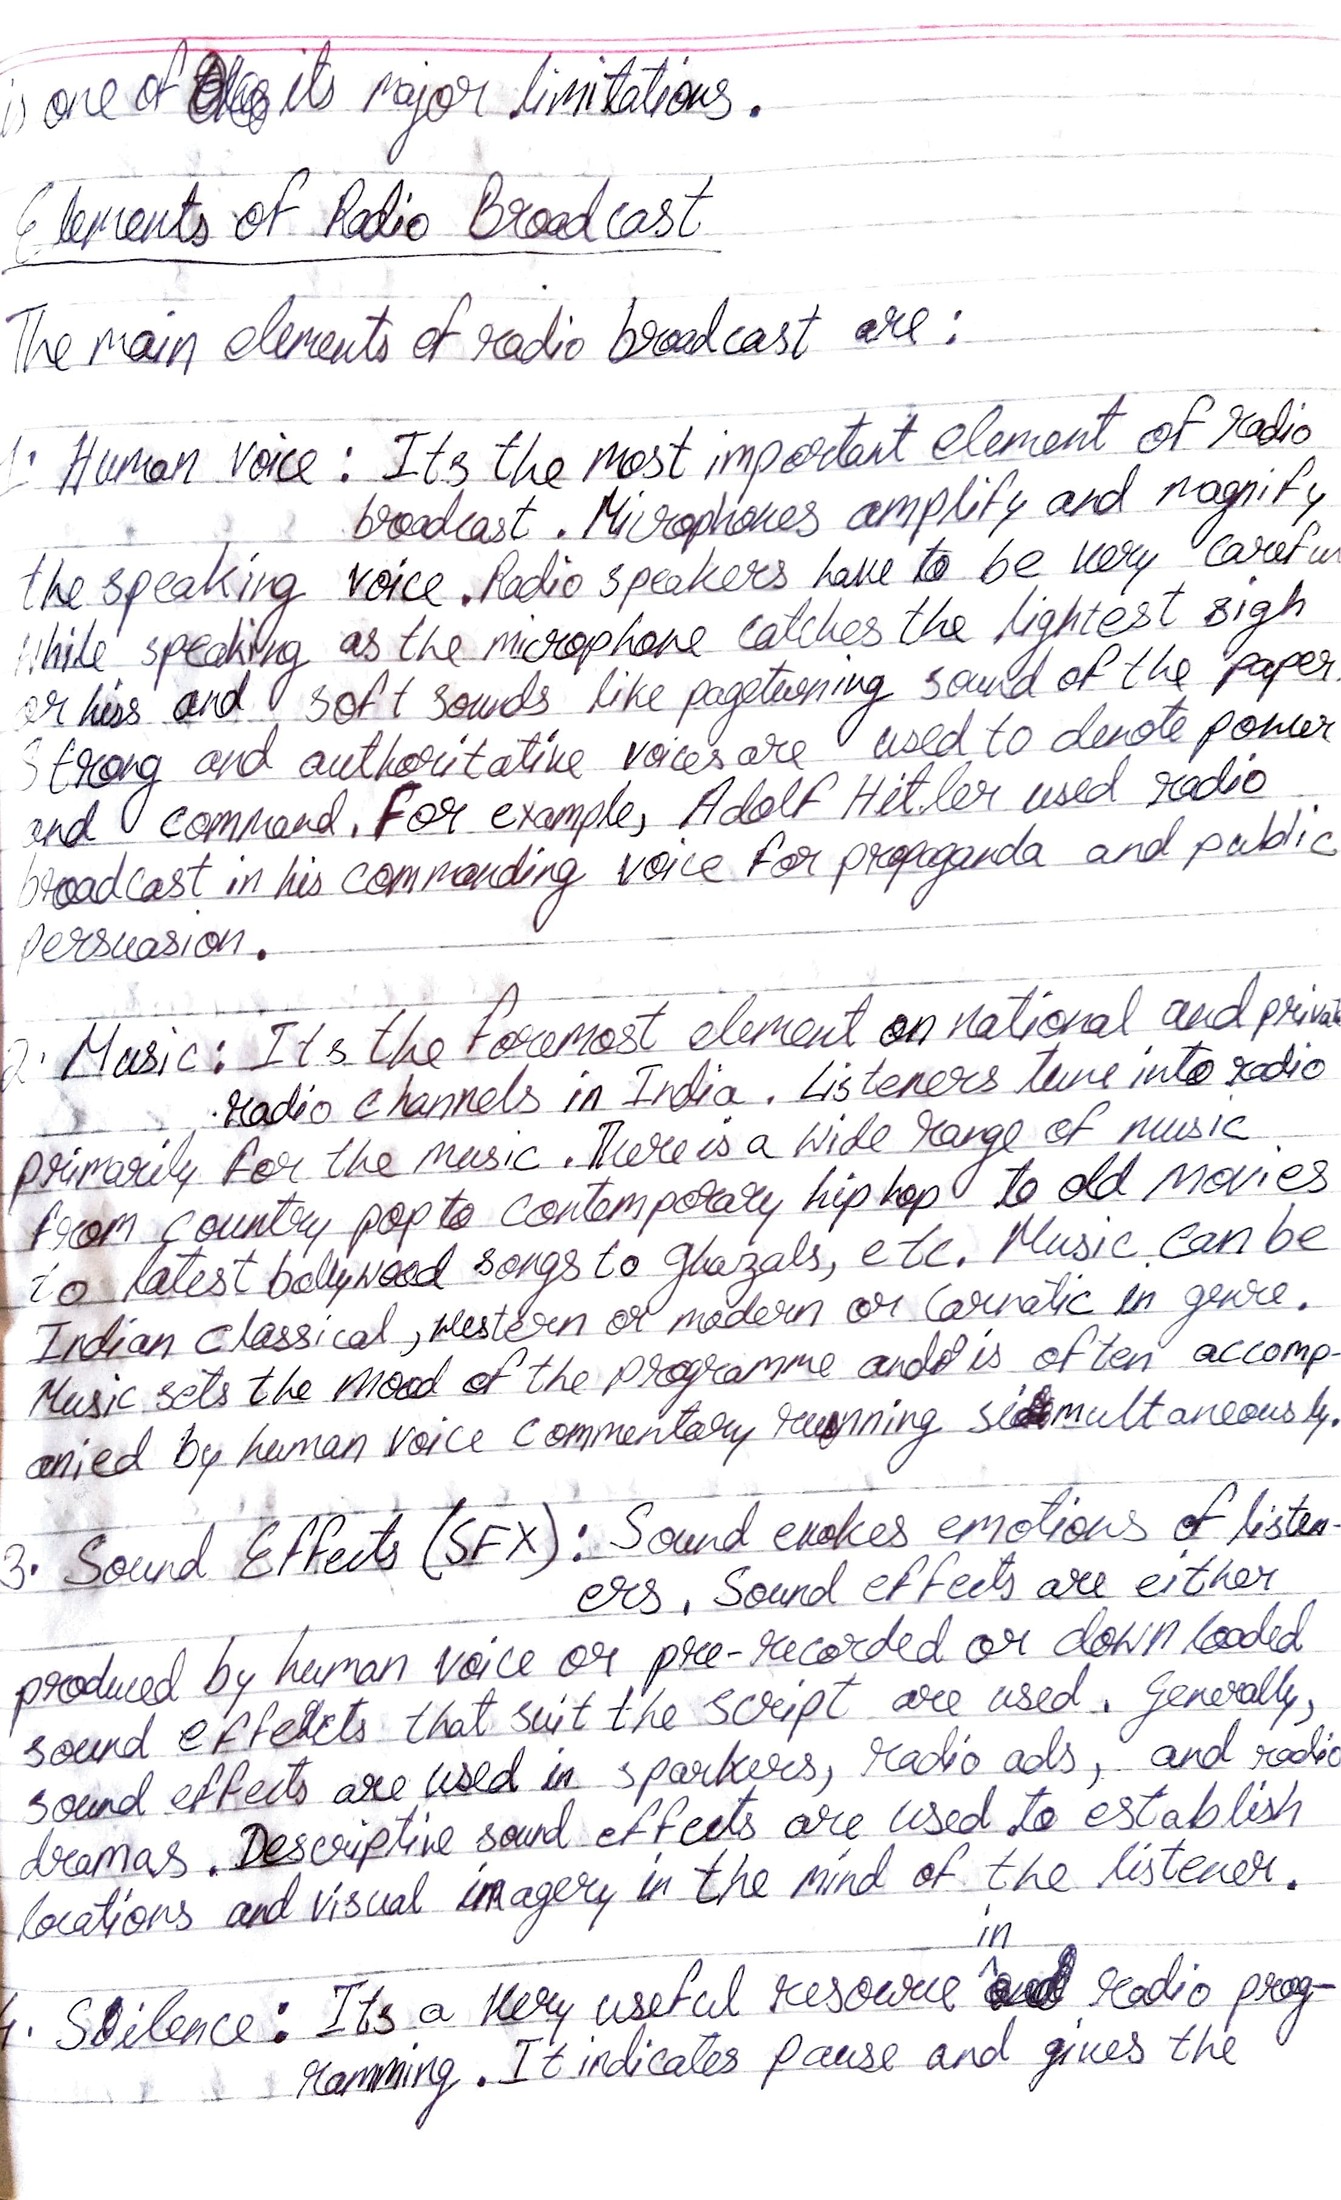 is one of its major limitations.
Elements of Radio Broadcast
The main elements of radio broadcast are:
1. Human voice: Its the most important element of radio
broadcast. Microphones amplify and magnify
the speaking voice. Radio speakers have to be very careful
while speaking as the microphone catches the lightest sigh
or hiss and soft sounds like pageturning sound of the paper.
Strong and authoritative voices are used to denote power
and command. For example, Adolf Hitler used radio
broadcast in his commanding voice for propaganda and public
persuasion.
2. Music: Its the foremost element on national and private
radio channels in India. Listeners tune into radio
primarily for the music. There is a wide range of music
from country pop to contemporary hip hop to old movies
to latest bollywood songs to Ghazals, etc. Music can be
Indian classical, western or modern or Carnatic in genre.
Music sets the mood of the programme and is often accomp-
anied by human voice commentary running simultaneously.
3. Sound Effects (SFX): Sound evokes emotions of listen-
ers. Sound effects are either
produced by human voice or pre-recorded or downloaded
sound effects that suit the script are used. Generally,
sound effects are used in sparkers, radio ads, and radio
dramas. Descriptive sound effects are used to establish
locations and visual imagery in the mind of the listener.
4. Silence: Its a very useful resource in radio prog-
ramming. It indicates pause and gives the